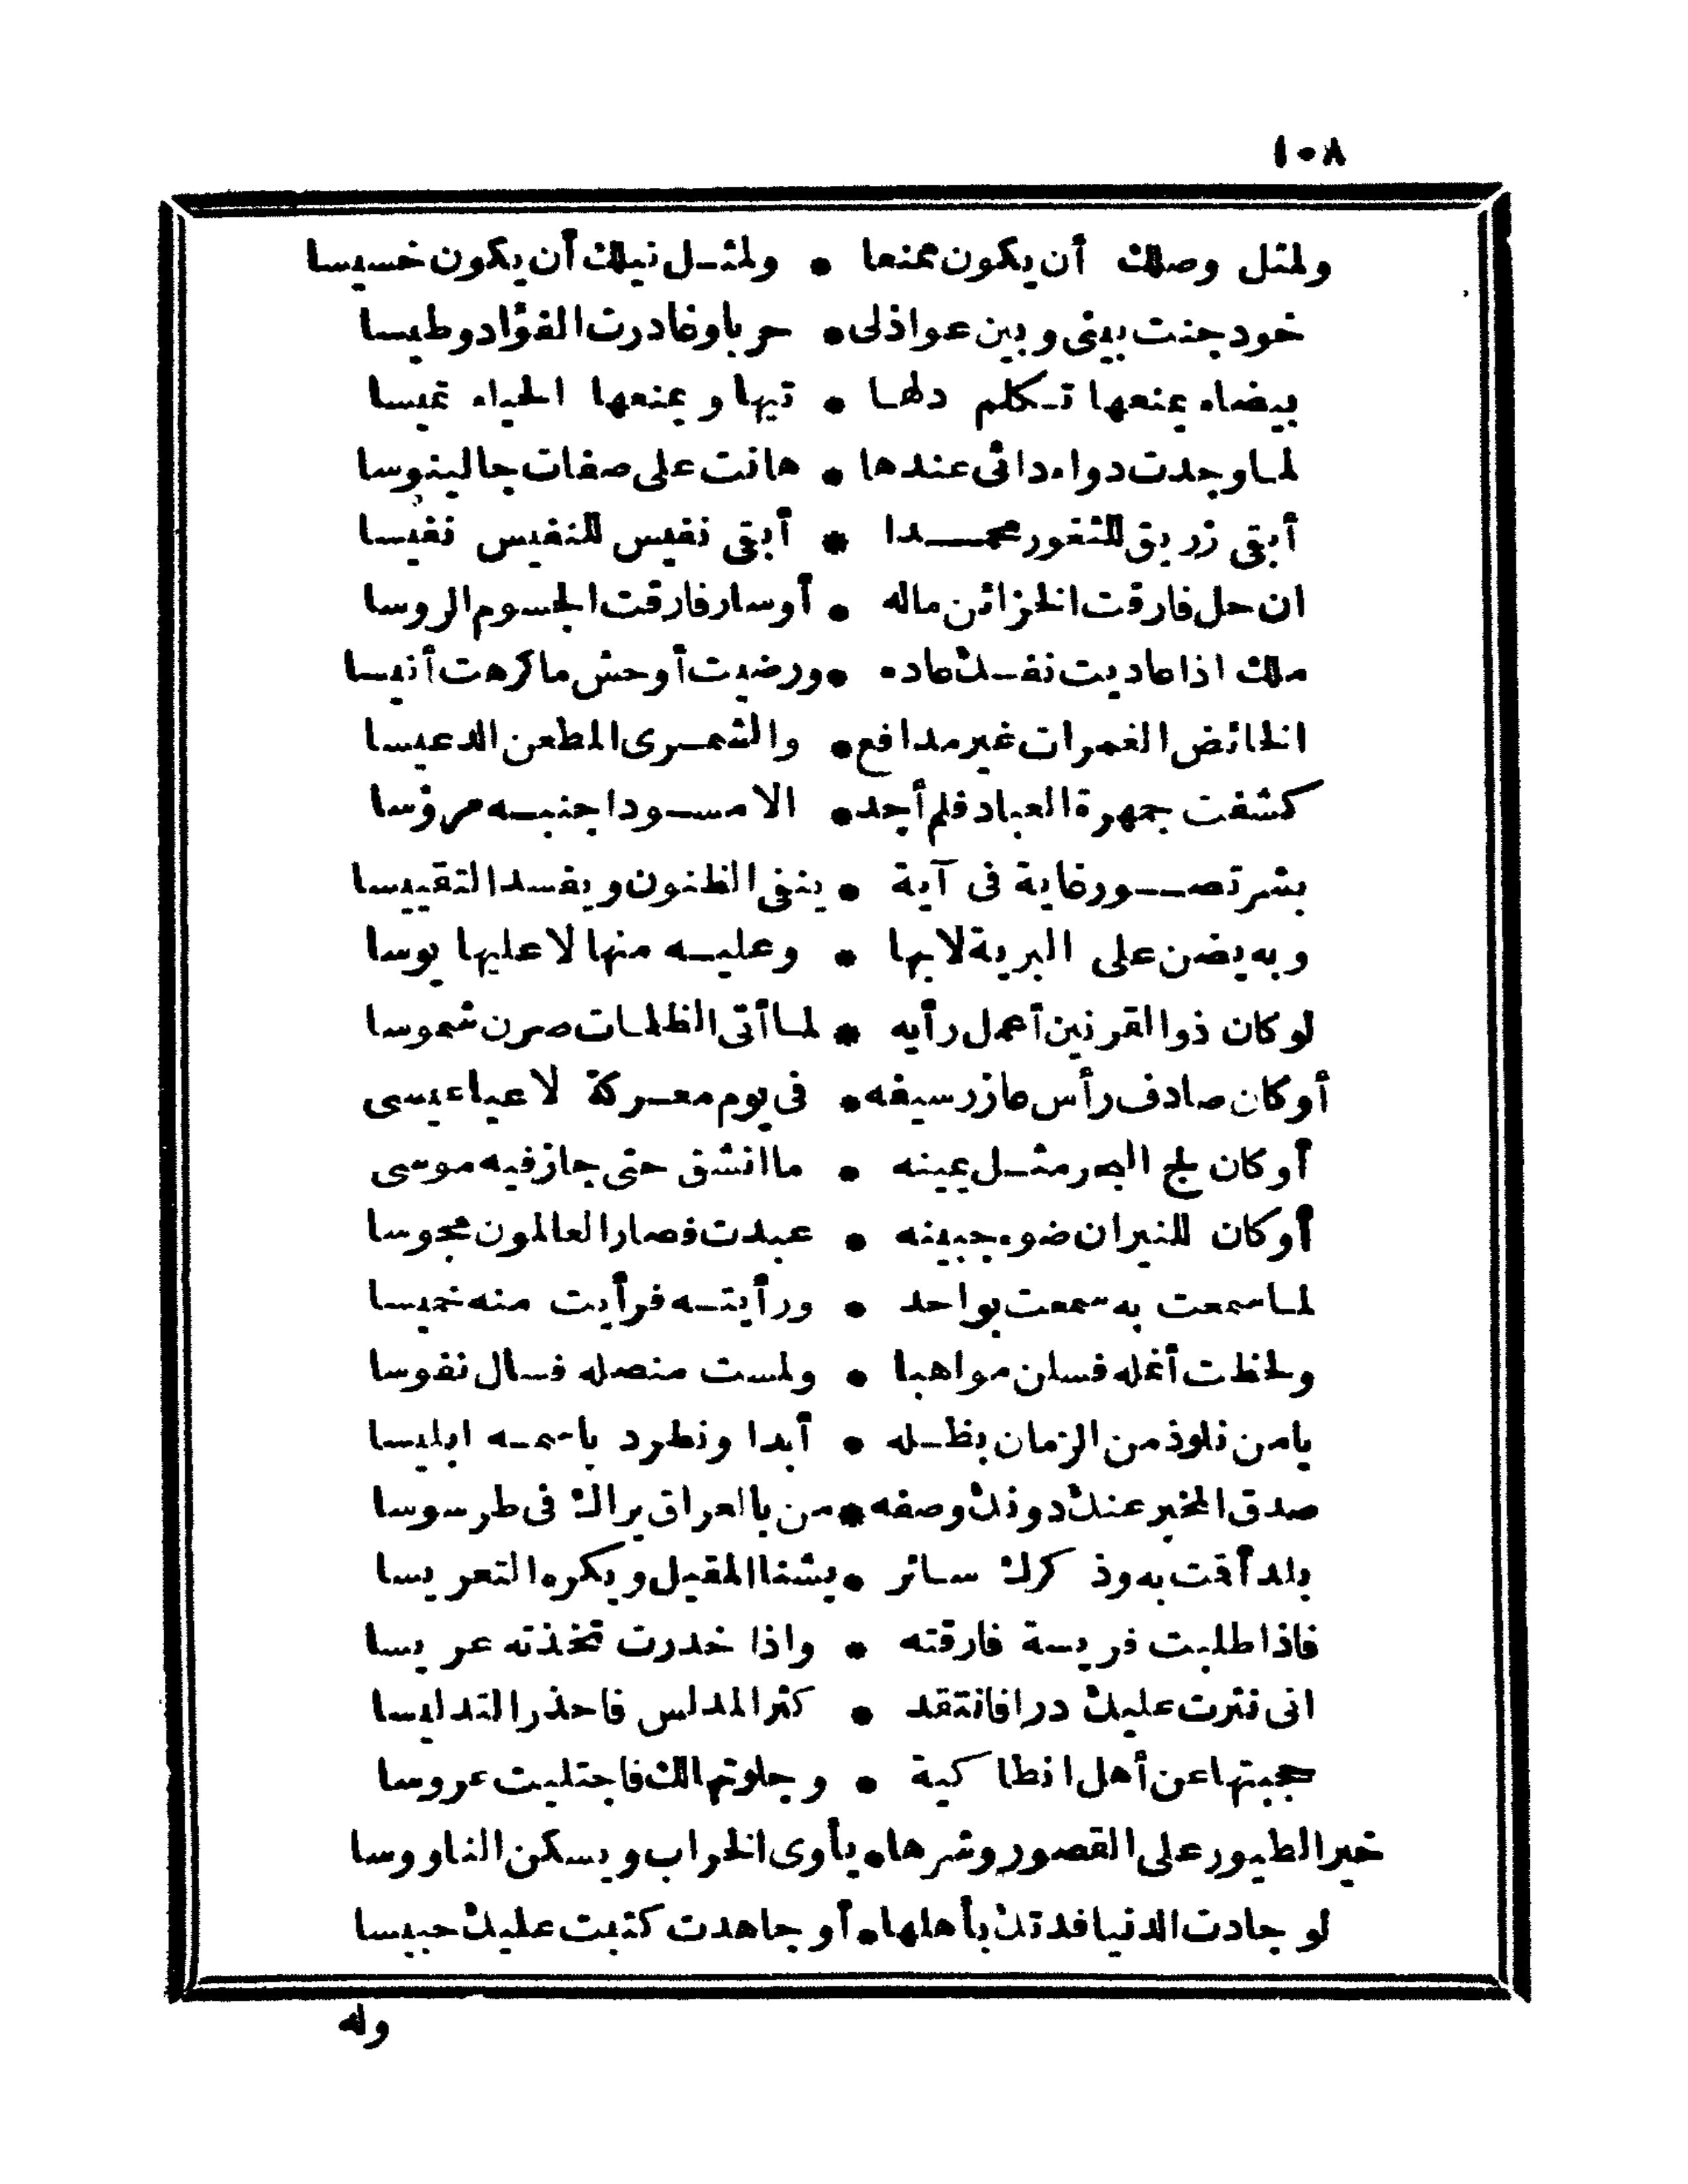 ١٠٨
ولمثل وصلك أن يكون ممنعا * ولمثل نيلك أن يكون خسيسا
خود جنت بيني وبين عواذلى * حربا وغادرت الفؤاد وطيسا
بيضاء يمنعها تكلم دلها * تيها ويمنعها الحياء تميسا
لما وجدت دواء دائى عندها * هانت على صفات جالينوسا
أبقى زريق للثغور محمدا * أبقى نفيس للنفيس نفيسا
ان حل فارقت الخزائن ماله * أوسار فارقت الجسوم الروسا
ملك اذا عاديت نفسك عاده * ورضيت أوحش ما كرهت أنيسا
الخائض الغمرات غير مدافع * والشمرى المطعن الدعيسا
كشفت جمهرة العباد فلم أجد * الا مسودا جنبه مرؤسا
بشر تصور غاية فى آية * ينفى الظنون ويفسد التقييسا
وبه يضن على البرية لا بها * وعليه منها لا عليها يوسا
لو كان ذو القرنين أعمل رأيه * لما أتى الظلمات صرن شموسا
أو كان صادف رأس عازر سيفه * فى يوم معركة لاعيا عيسى
أو كان لج البحر مثل يمينه * ما انشق حتى جاز فيه موسى
أو كان للنيران ضوء جبينه * عبدت فصار العالمون مجوسا
لما سمعت به سمعت بواحد * ورأيته فرأيت منه خميسا
ولحظت أنمله فسلن مواهبا * ولمست منصله فسال نفوسا
يا من نلوذ من الزمان بظله * أبدا ونطرد باسمه ابليسا
صدق المخبر عنك دونك وصفه * من بالعراق يراك فى طرسوسا
بلد أقمت به وذكرك سائر * يشنا المقيل ويكره التعريسا
فاذا طلبت فريسة فارقته * واذا خدرت تخذته عريسا
انى نثرت عليك درا فانتقد * كثر المدلس فاحذر التدليسا
حجبتها عن أهل انطاكية * وجلوتها لك فاجتليت عروسا
خير الطيور على القصور وشرها * يأوى الخراب ويسكن الناووسا
لو جادت الدنيا فدتك بأهلها * أو جاهدت كتبت عليك حبيسا
وله